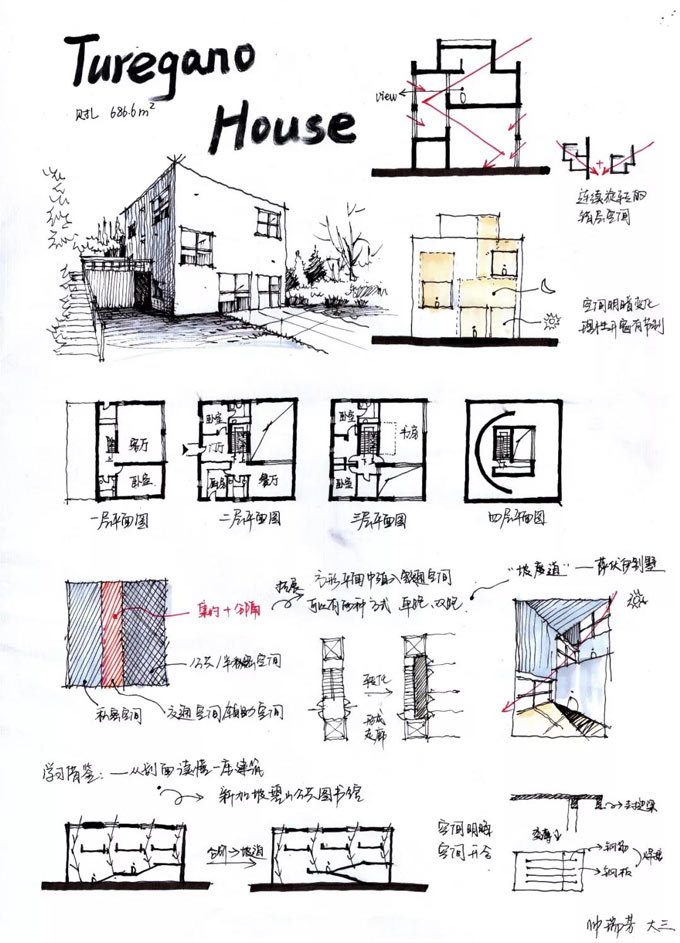 Turegano
House
686.6 m²
view
连续旋转的
错层空间
空间明暗变化
理性开窗有节制
客厅
卧室
卧室
门厅
厨房
餐厅
卧室
书房
卧室
一层平面图
二层平面图
三层平面图
四层平面图
集约+分隔
公共/半私密空间
私密空间
交通空间/辅助空间
拓展
方形平面中插入交通空间
可以有两种方式 单跑、双跑
"坡度道"——萨伏伊别墅
转化
形成
走廊
学习借鉴:——从剖面读懂一座建筑
新加坡碧山公共图书馆
台阶→坡道
空间明暗
空间开合
钢筋
钢板
焊接
帅瑞芳 大三